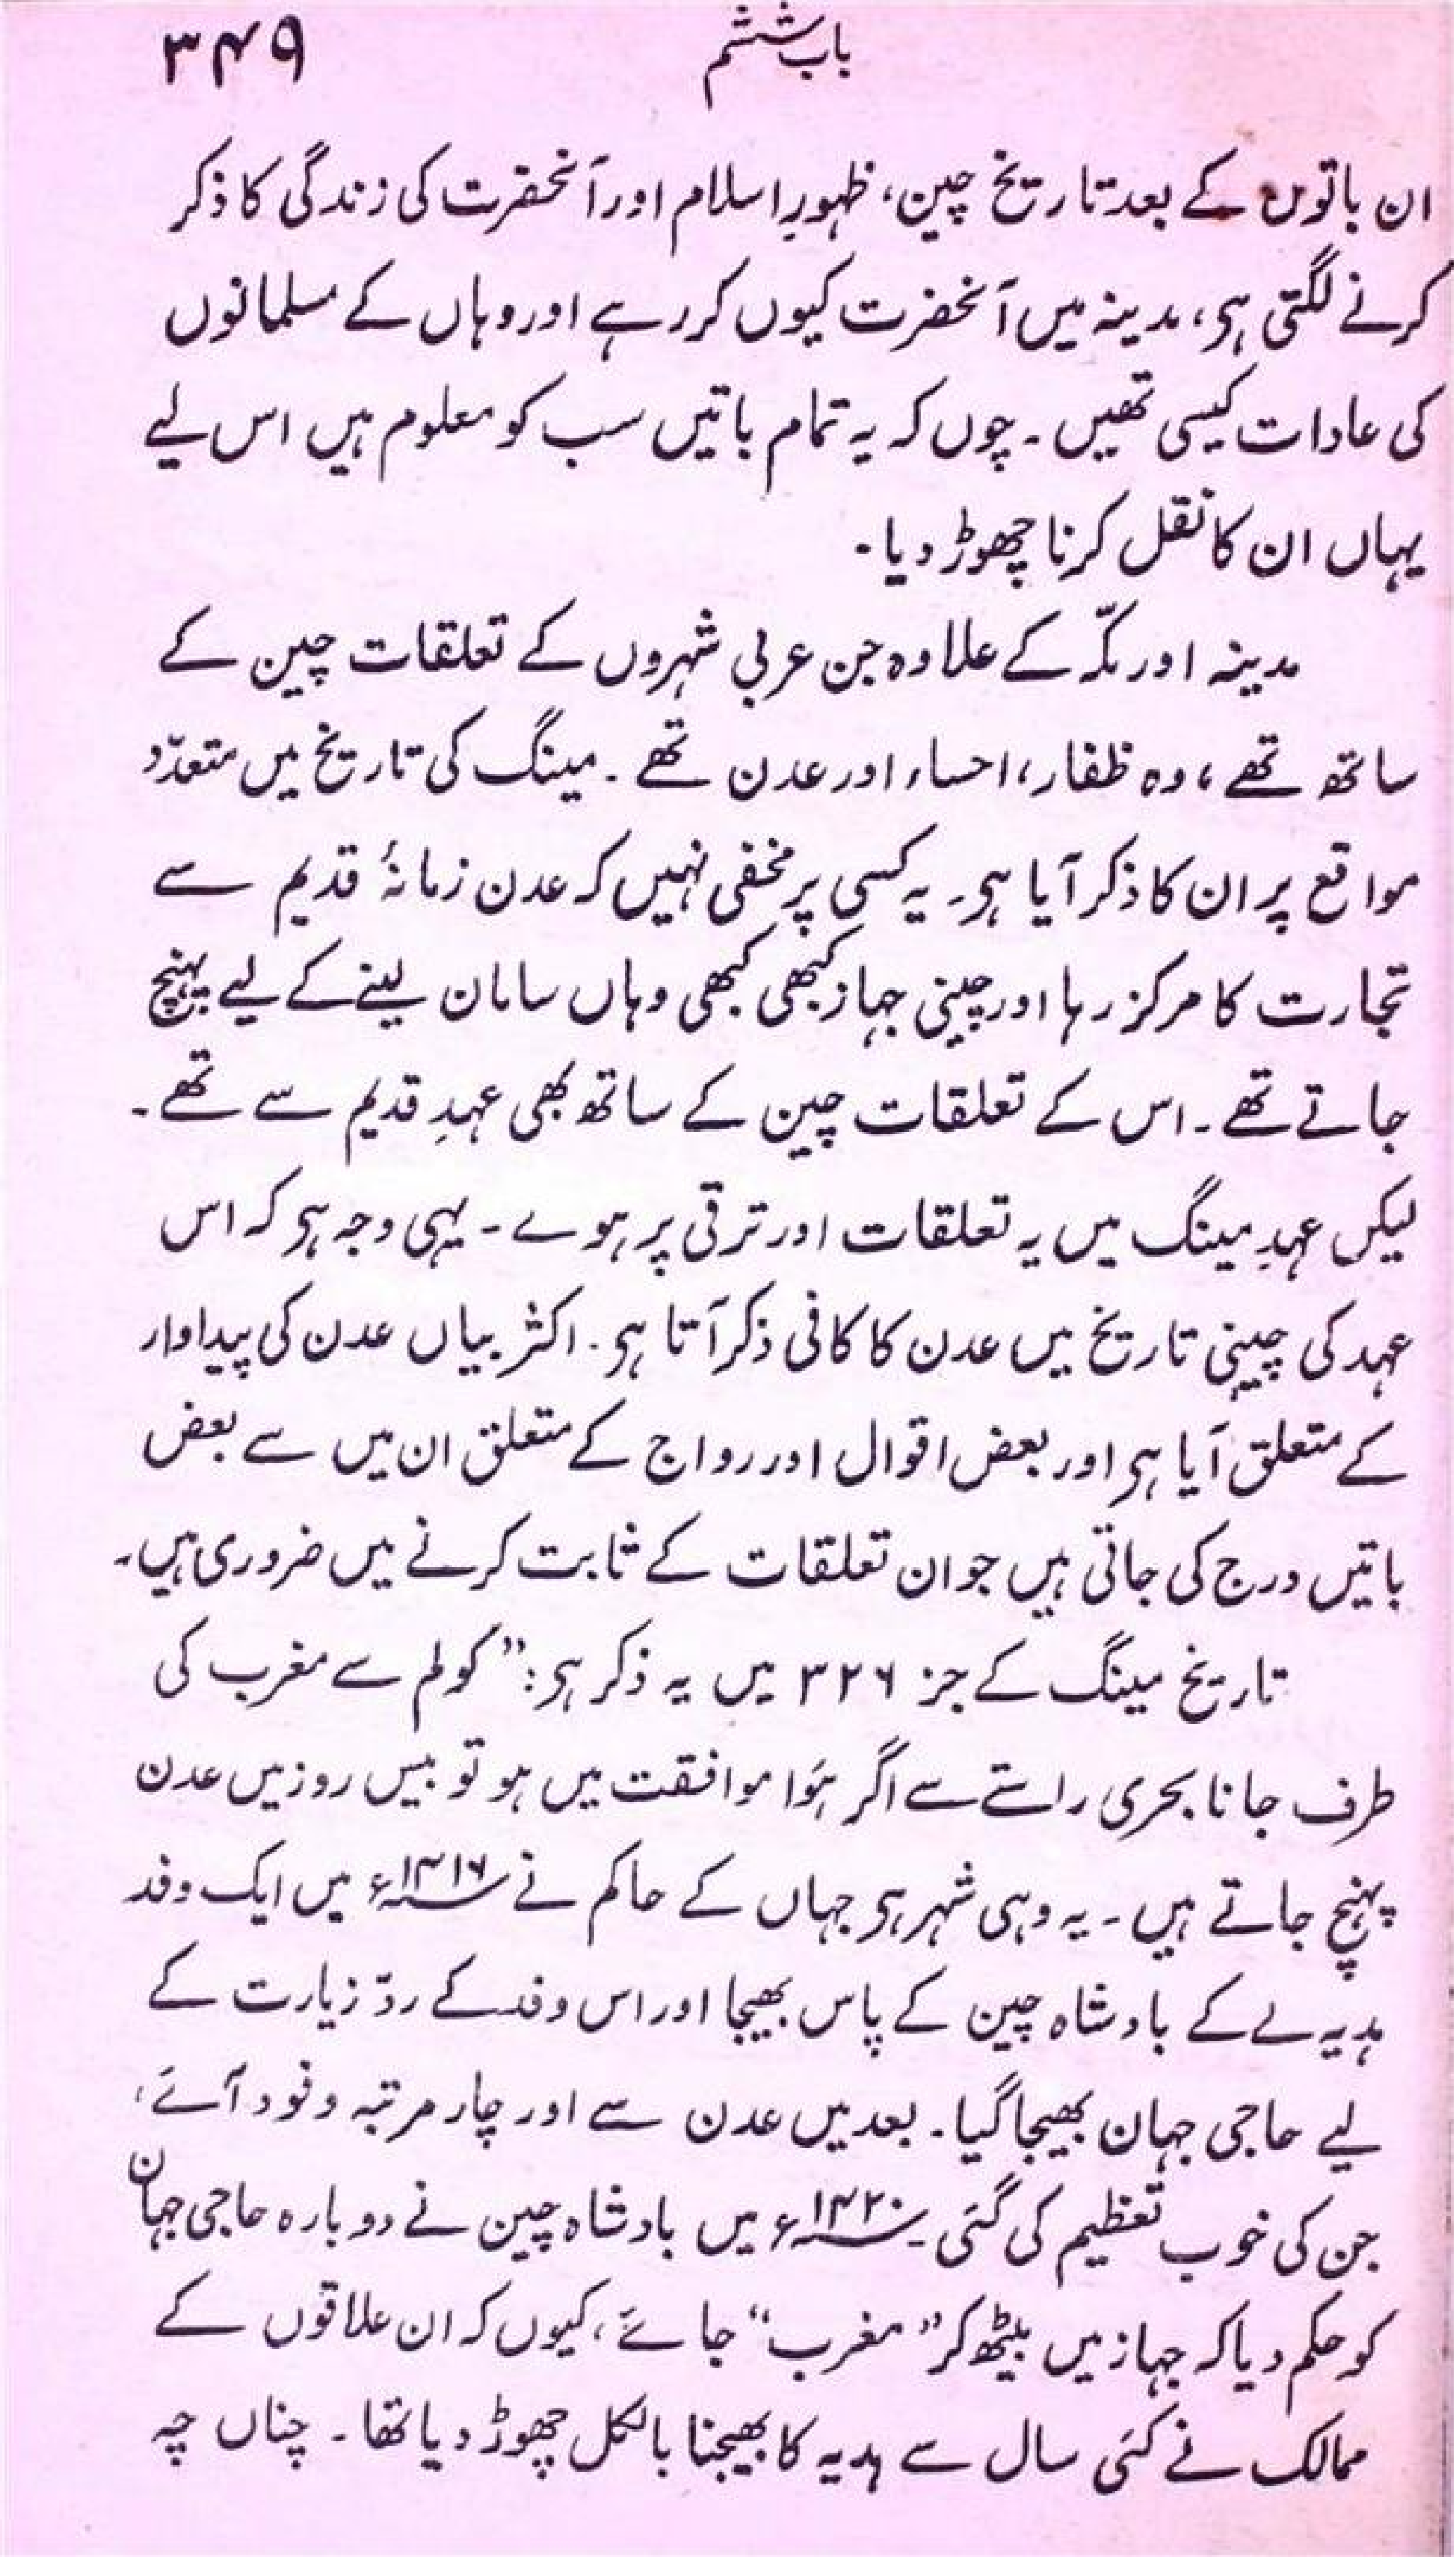 باب ششم ۳۴۹
ان باتوں کے بعد تاریخ چین، ظہورِ اسلام اور آنحضرت کی زندگی کا ذکر
کرنے لگتی ہی، مدینہ میں آنحضرت کیوں کر رہے اور وہاں کے مسلمانوں
کی عادات کیسی تھیں۔ چوں کہ یہ تمام باتیں سب کو معلوم ہیں اس لیے
یہاں ان کا نقل کرنا چھوڑ دیا۔
مدینہ اور مکّہ کے علاوہ جن عربی شہروں کے تعلقات چین کے
ساتھ تھے، وہ ظفار، احساء اور عدن تھے۔ مینگ کی تاریخ میں متعدّد
مواقع پر ان کا ذکر آیا ہی۔ یہ کسی پر مخفی نہیں کہ عدن زمانۂ قدیم سے
تجارت کا مرکز رہا اور چینی جہاز کبھی کبھی وہاں سامان لینے کے لیے پہنچ
جاتے تھے۔ اس کے تعلقات چین کے ساتھ بھی عہدِ قدیم سے تھے۔
لیکن عہدِ مینگ میں یہ تعلقات اور ترقی پر ہوے۔ یہی وجہ ہی کہ اس
عہد کی چینی تاریخ میں عدن کا کافی ذکر آتا ہی۔ اکثر بیاں عدن کی پیداوار
کے متعلق آیا ہی اور بعض اقوال اور رواج کے متعلق ان میں سے بعض
باتیں درج کی جاتی ہیں جو ان تعلقات کے ثابت کرنے میں ضروری ہیں۔
تاریخ مینگ کے جز ۳۲۶ میں یہ ذکر ہی: ”کولم سے مغرب کی
طرف جانا بحری راستے سے اگر ہَوا موافقت میں ہو تو بیس روز میں عدن
پہنچ جاتے ہیں۔ یہ وہی شہر ہی جہاں کے حاکم نے ۱۴۱۶ء میں ایک وفد
ہدیہ لے کے بادشاہ چین کے پاس بھیجا اور اس وفد کے ردّ زیارت کے
لیے حاجی جہان بھیجا گیا۔ بعد میں عدن سے اور چار مرتبہ وفود آئے،
جن کی خوب تعظیم کی گئی۔ ۱۴۲۰ء میں بادشاہ چین نے دوبارہ حاجی جہان
کو حکم دیا کہ جہاز میں بیٹھ کر ”مغرب“ جائے، کیوں کہ ان علاقوں کے
ممالک نے کئی سال سے ہدیہ کا بھیجنا بالکل چھوڑ دیا تھا۔ چناں چہ